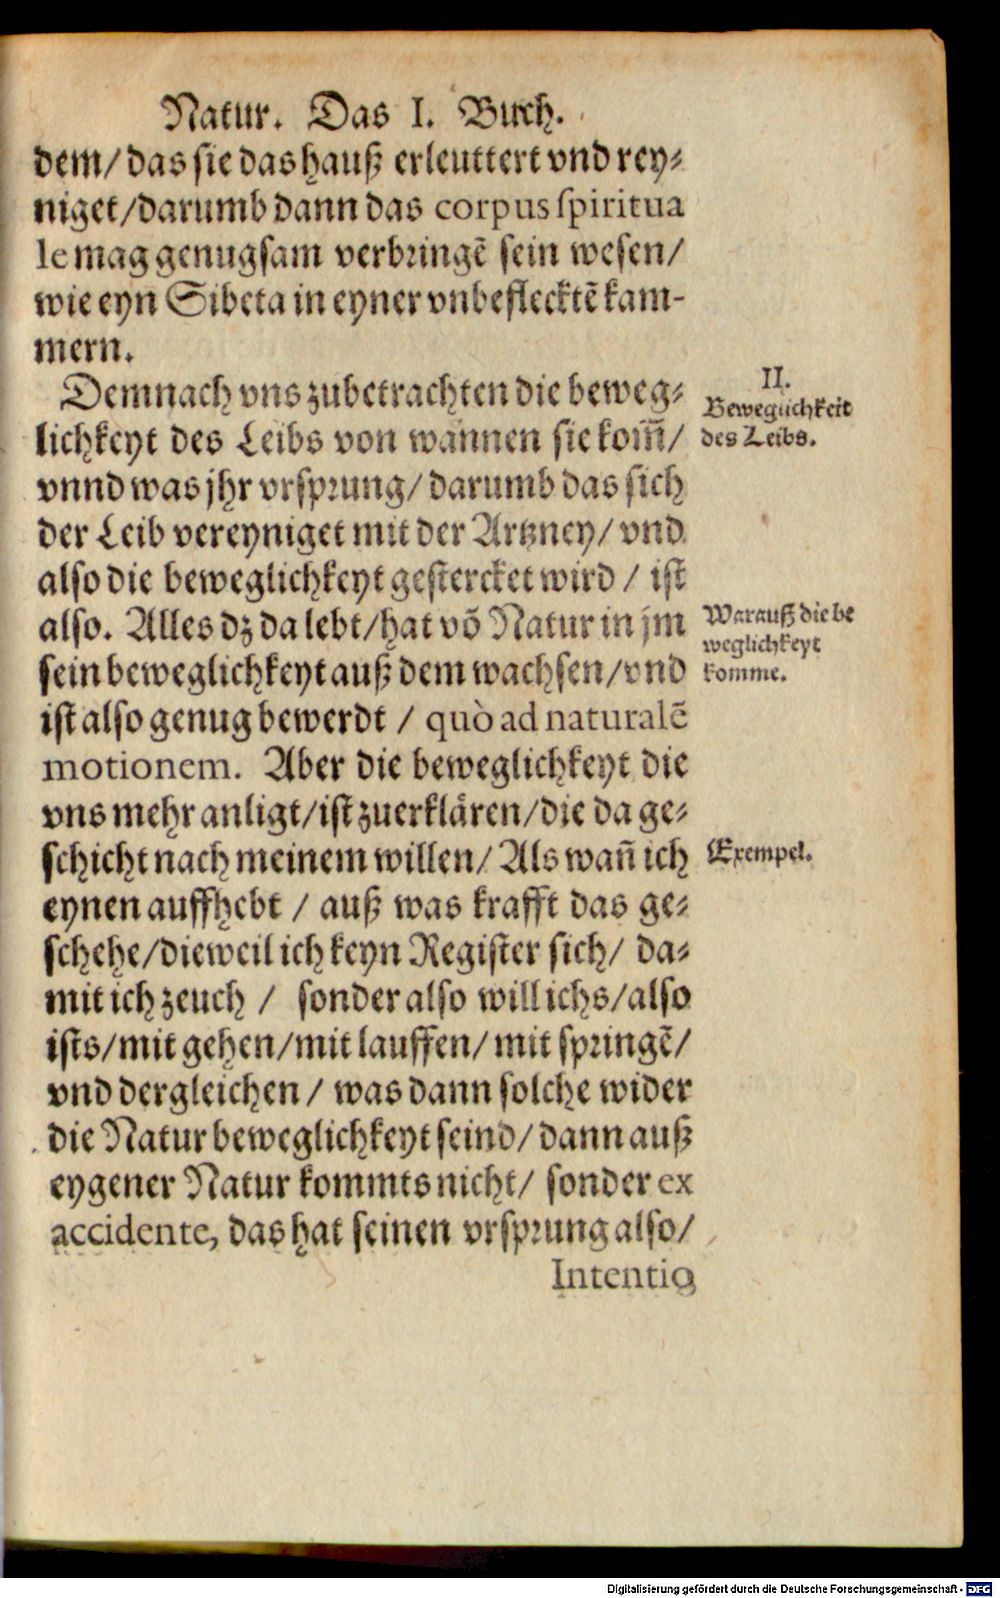 Natur. Das I. Buch.
dem/ das sie das hauß erleuttert vnd rey⸗
niget/darumb dann das corpus spiritua
le mag genugsam verbringẽ sein wesen/
wie eyn Sibeta in eyner vnbeflecktẽ kam-
mern.
Demnach vns zubetrachten die beweg⸗
lichkeyt des Leibs von wannen sie kom̃/
vnnd was jhr vrsprung/ darumb das sich
der Leib vereyniget mit der Artzney/ vnd
also die beweglichkeyt gestercket wird / ist
also. Alles dz da lebt/hat võ Natur in jm
sein beweglichkeyt auß dem wachsen/vnd
ist also genug bewerdt / quò ad naturalẽ
motionem. Aber die beweglichkeyt die
vns mehr anligt/ist zuerklären/die da ge⸗
schicht nach meinem willen/ Als wañ ich
eynen auffhebt / auß was krafft das ge⸗
schehe/dieweil ich keyn Register sich/ da⸗
mit ich zeuch / sonder also will ichs/also
ists/mit gehen/mit lauffen/ mit springẽ/
vnd dergleichen / was dann solche wider
die Natur beweglichkeyt seind/ dann auß
eygener Natur kommts nicht/ sonder ex
accidente, das hat seinen vrsprung also/
Intentio
II.
Beweglichkeit
des Leibs.
Warauß die be
weglichkeyt
komme.
Exempel.
Digitalisierung gefördert durch die Deutsche Forschungsgemeinschaft - DFG